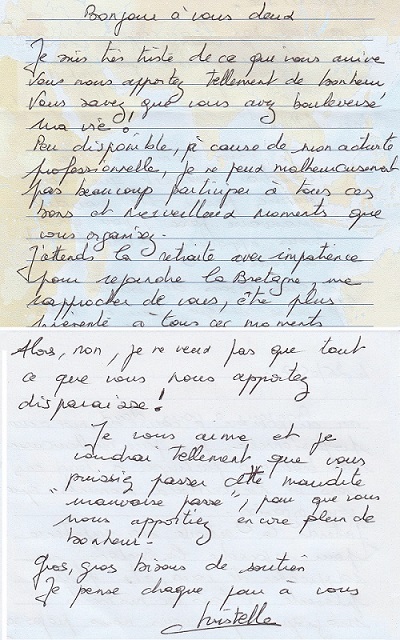 Bonjour à vous deux
Je suis très triste de ce que vous arrive
Vous nous apportez tellement de bonheur
Vous savez que vous avez bouleversé
ma vie !
Peu disponible, à cause de mon activité
professionnelle, je ne peux malheureusement
pas beaucoup participer à tous ces
bons et merveilleux moments que
vous organisez.
J'attends la retraite avec impatience
pour rejoindre la Bretagne, me
rapprocher de vous, être plus
présente à tous ces moments
Alors, non, je ne veux pas que tout
ce que vous nous apportez
disparaisse !
Je vous aime et je
voudrai tellement que vous
puissiez passer cette maudite
"mauvaise passe", pour que vous
nous apportiez encore plein de
bonheur.
Gros, gros bisous de soutien
Je pense chaque jour à vous
Christelle